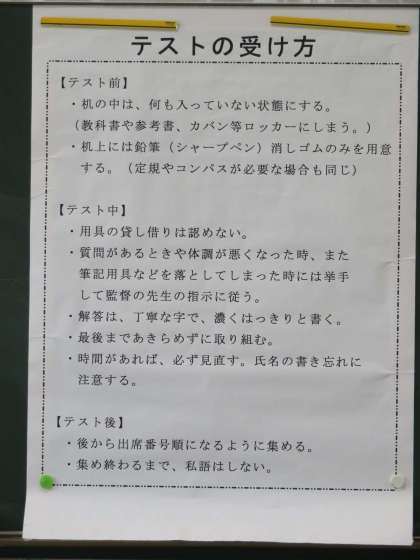 テストの受け方
【テスト前】
・机の中は、何も入っていない状態にする。
（教科書や参考書、カバン等ロッカーにしまう。）
・机上には鉛筆（シャープペン）消しゴムのみを用意
する。（定規やコンパスが必要な場合も同じ）
【テスト中】
・用具の貸し借りは認めない。
・質問があるときや体調が悪くなった時、また
筆記用具などを落としてしまった時には挙手
して監督の先生の指示に従う。
・解答は、丁寧な字で、濃くはっきりと書く。
・最後まであきらめずに取り組む。
・時間があれば、必ず見直す。氏名の書き忘れに
注意する。
【テスト後】
・後から出席番号順になるように集める。
・集め終わるまで、私語はしない。